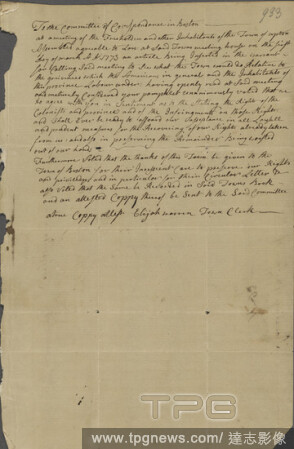 983
To the committee of Correspondence in Boston
at a meeting of the Freeholders and other Inhabitants of the Town of
assembled agreable to Law at said Towns meeting house on the first
day of march A D 1773 an article being Inserted in the warrant
for Calling said meeting to see what the Town would do Relative to
the grievances which the Americans in general and the Inhabitants of
the province Labour under having openly read at said meeting
and maturely considered your pamphlet unanimously voted that we
do agree with you in Sentiment as to the Stating the Rights of the
Colonists and province and of the Infringement on those Rights
and Shall Ever be ready to afford our assistance in all Lawfull
and prudent measures for the Recovering of our Rights already taken
from us as also in preserving the Remainder Being
out of our hands
Furthermore Voted that the thanks of the Town be given to the
Town of Boston for their Care to preserve our Rights
and priviledges and in perticular for their Circular Letter &c
also Voted that the Same be Recorded in Said Towns Book
and an attested Coppy thereof be Sent to the Said Committee
above Coppy attest Elijah warren Town Clerk
TPG
www.tpgnews.com/達志影像